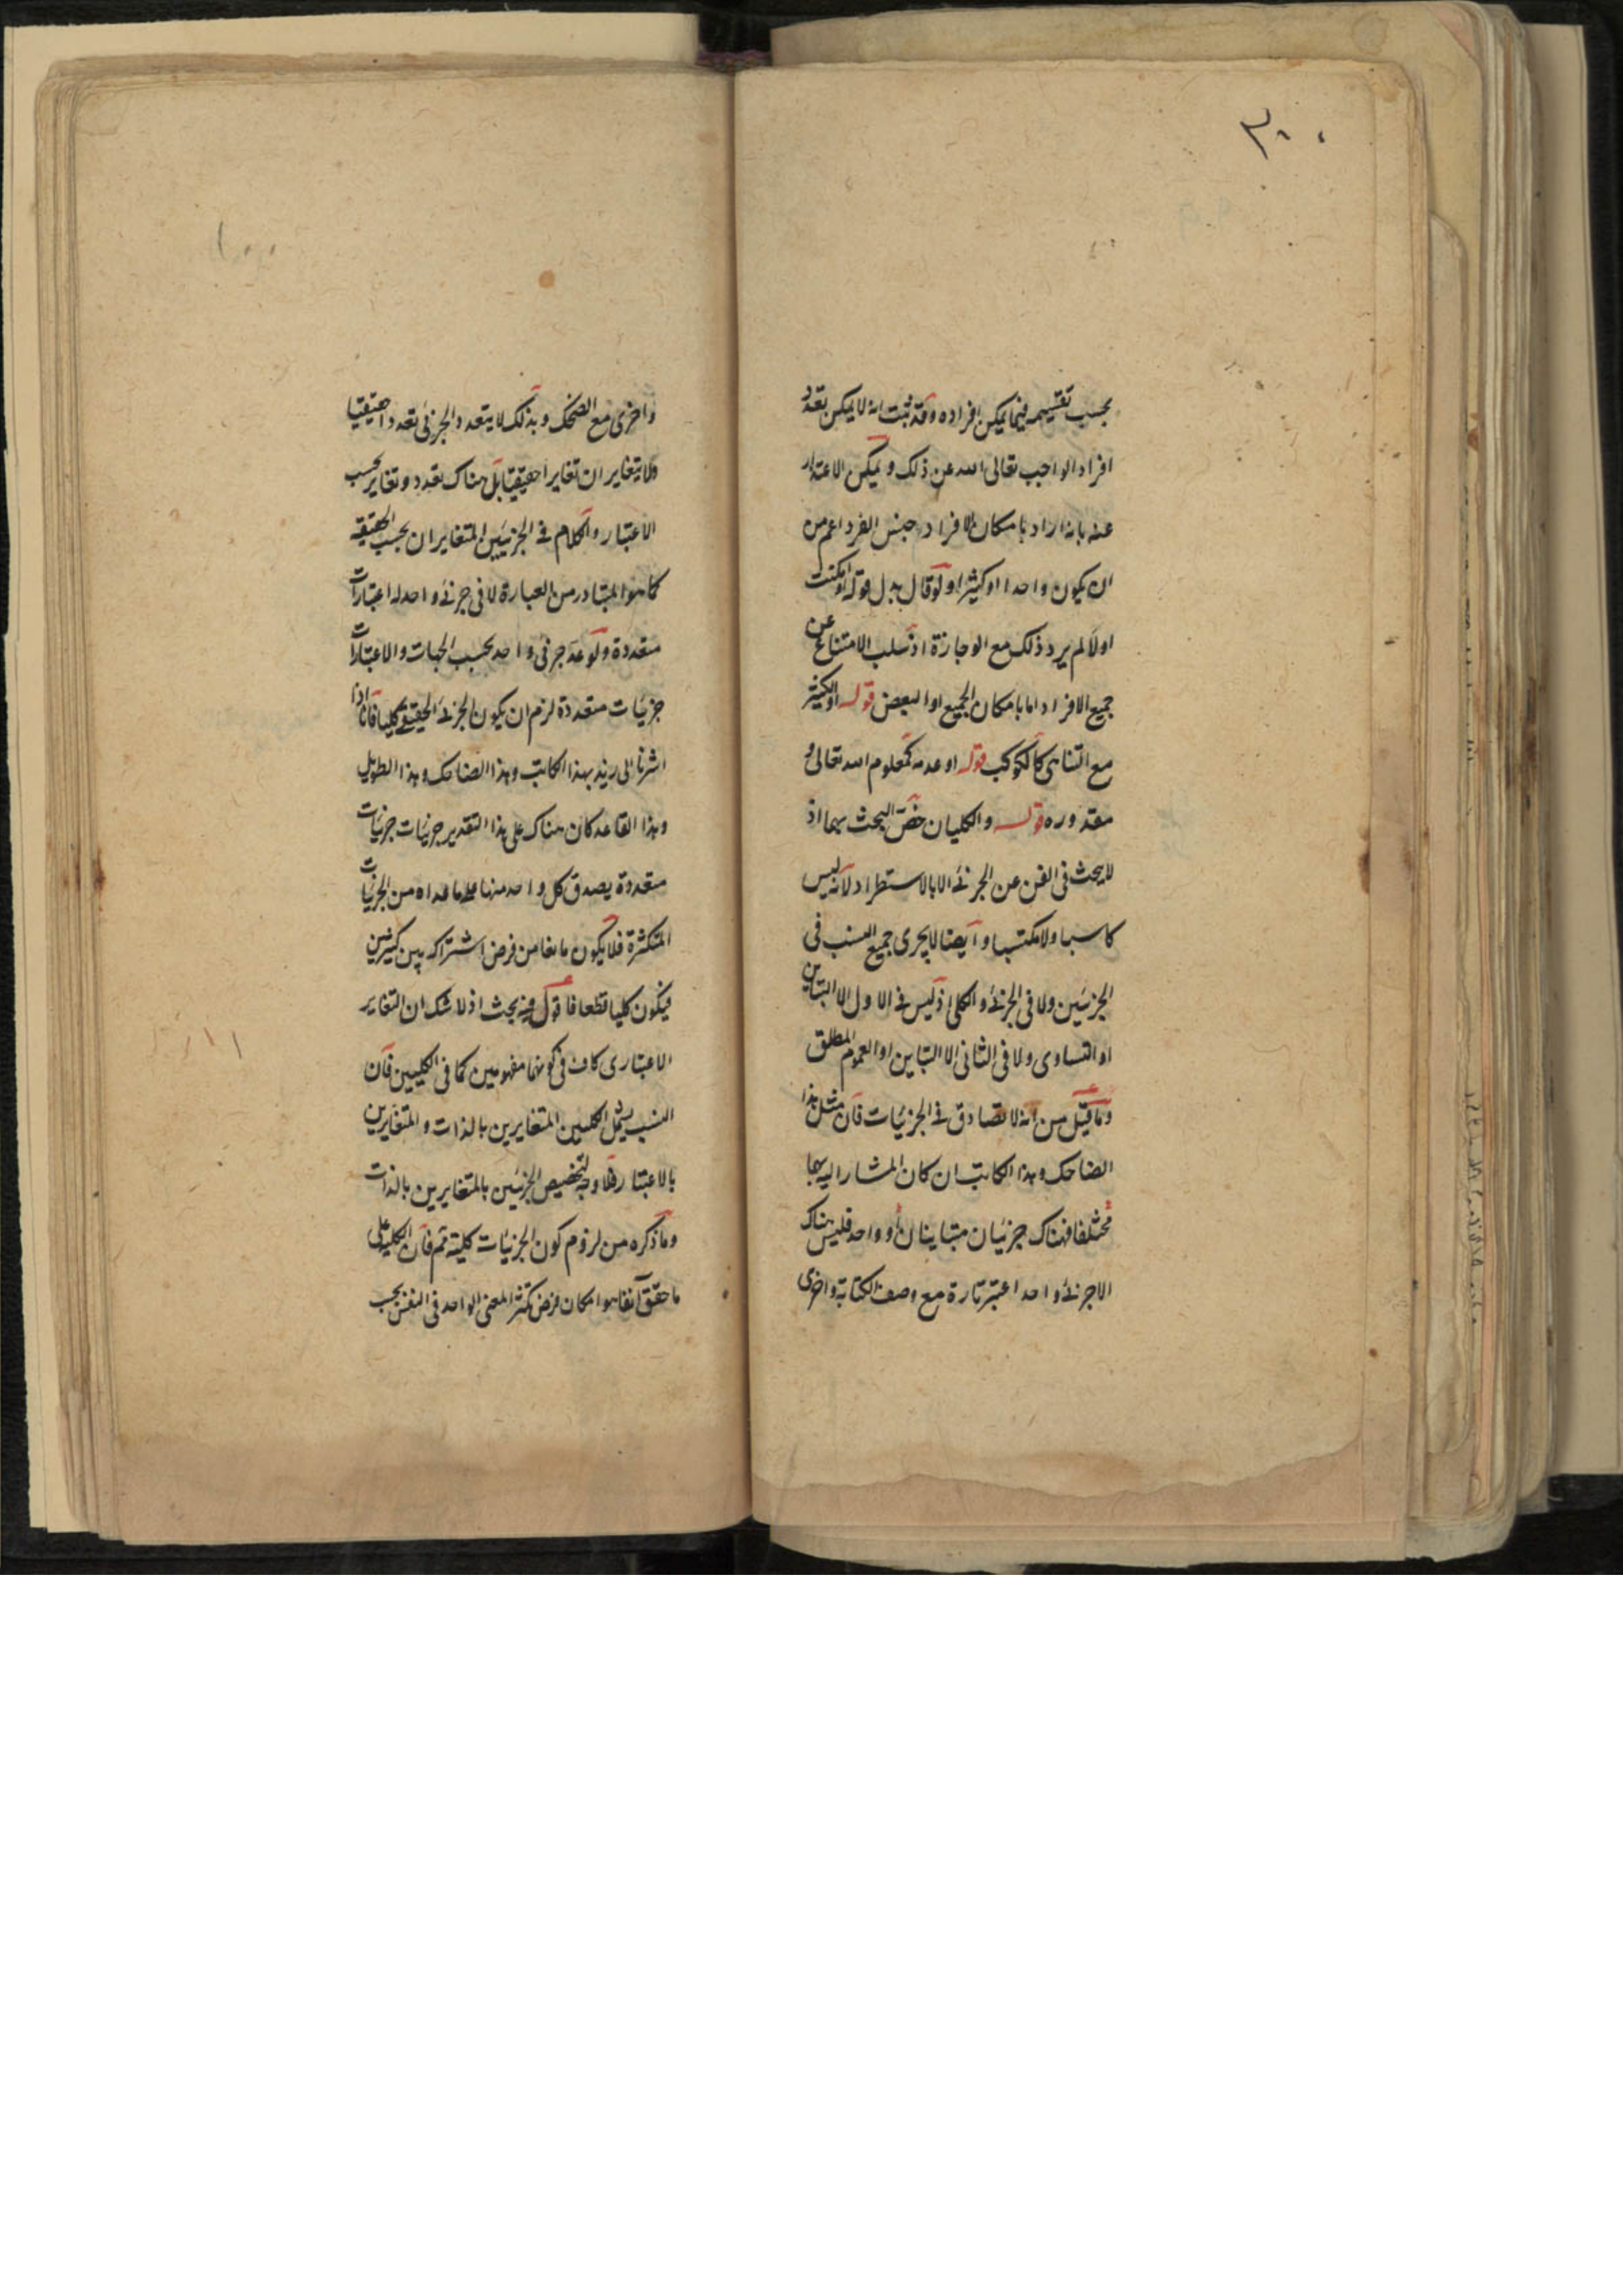 بحسب تقسيمه فيما يمكن افراده وقد ثبت انه لا يمكن تعدد
افراد الواجب تعالى الله عن ذلك ويمكن الاعتذار
عنه بانه اراد بامكان الافراد جنس الفرد اعم من
ان يكون واحدا او كثيرا ولو قال بدل قوله او امكنت
اولا لم يرد ذلك مع الوجازة اذ سلب الامتناع عن
جميع الافراد اما بامكان الجميع او البعض قوله او الكثير
مع التناهى كالكوكب قوله او عدمه كمعلوم الله تعالى و
مقدوره قوله والكليان خص البحث بهما اذ
لا يبحث فى الفن عن الجزئى الا بالاستطراد لانه ليس
كاسبا ولا مكتسبا وايضا لا يجرى جميع النسب فى
الجزئيين ولا فى الجزئى والكلى اذ ليس فى الاول الا التباين
او التساوى ولا فى الثانى الا التباين او العموم المطلق
وما قيل من انه لا تصادق فى الجزئيات فان مثل هذا
الضاحك وهذا الكاتب ان كان المشار اليه بهما
مختلفا فهناك جزئيان متباينان او واحد فليس هناك
الا جزئى واحد اعتبر تارة مع وصف الكتابة واخرى
٢٠٠
واخرى مع الضحك وبذلك لا يتعدد الجزئى تعددا حقيقيا
ولا يتغايران تغايرا حقيقيا بل هناك تعدد وتغاير بحسب
الاعتبار والكلام فى الجزئيين المتغايران بحسب الحقيقة
كما هو المتبادر من العبارة لا فى جزئى واحد له اعتبارات
متعددة ولو عد جزئى واحد بحسب الجهات والاعتبارات
جزئيات متعددة لزم ان يكون الجزئى الحقيقى كليا فانا اذا
اشرنا الى زيد بهذا الكاتب وهذا الضاحك وهذا الطويل
وهذا القاعد كان هناك على هذا التقدير جزئيات جزئيات
متعددة يصدق كل واحد منها على ما عداه من الجزئيات
المتكثرة فلا يكون مانعا من فرض اشتراكه بين كثيرين
فيكون كليا قطعا فاقول فيه بحث اذ لا شك ان التغاير
الاعتبارى كاف فى كونهما مفهومين كما فى الكليين فان
النسب يشمل الكليين المتغايرين بالذات والمتغايرين
بالاعتبار فلا وجه لتخصيص الجزئيين بالمتغايرين بالذات
وما ذكره من لزوم كون الجزئيات كلية ثم فان الكلية على
ما حقق آنفا هو امكان فرض تكثر المعنى الواحد فى النفس بحسب